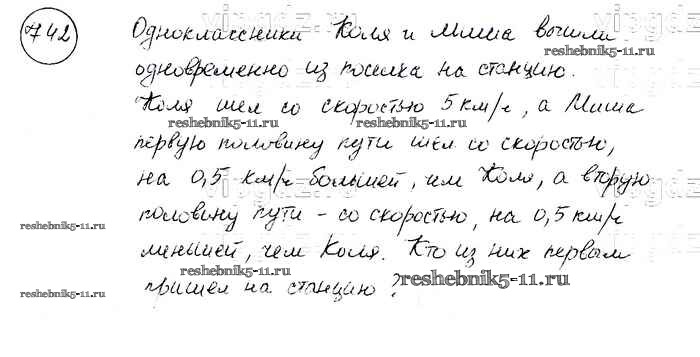 742
Одноклассники Коля и Миша вышли
одновременно из поселка на станцию.
Коля шел со скоростью 5 км/ч, а Миша
reshebnik5-11.ru reshebnik5-11.ru
первую половину пути шел со скоростью,
на 0,5 км/ч большей, чем Коля, а вторую
половину пути - со скоростью, на 0,5 км/ч
reshebnik5-11.ru
меньшей, чем Коля. Кто из них первым
reshebnik5-11.ru reshebnik5-11.ru
пришел на станцию?
reshebnik5-11.ru